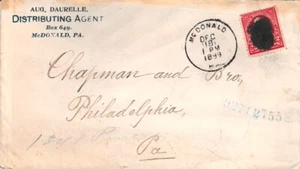 AUG. DAURELLE,
DISTRIBUTING AGENT
Box 649.
McDONALD, PA.
McDONALD
DEC
18
1 PM
1899
Chapman and Bro,
Philadelphia,
Pa